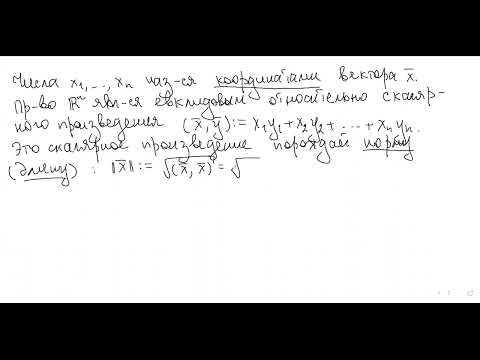 Числа x₁, ..., xₙ наз-ся координатами вектора x̄.
Пр-во ℝⁿ явл-ся евклидовым относительно скаляр-
ного произведения (x̄, ȳ) := x₁y₁ + x₂y₂ + ... + xₙyₙ.
Это скалярное произведение порождает норму
(длину) : ‖x̄‖ := √(x̄, x̄) = √